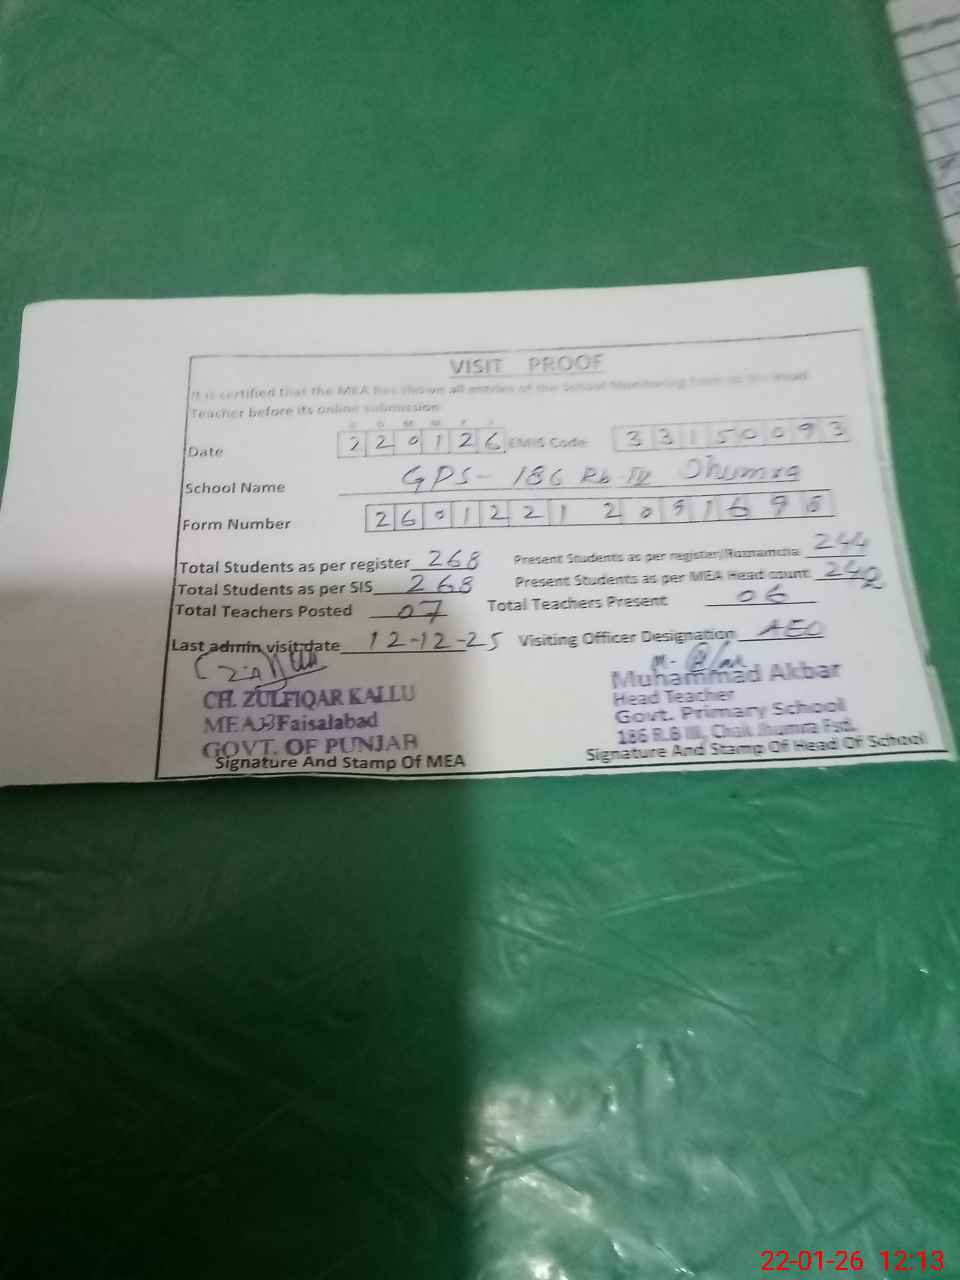 VISIT PROOF
It is certified that the MEA has shown all entries of the School Monitoring Form to the Head
Teacher before its online submission
D D M M Y Y
Date 220126 EMIS Code 33150093
School Name GPS- 186 Rb-III Jhumra
Form Number
Total Students as per register 268 Present Students as per register/Roznamcha 244
Total Students as per SIS 268 Present Students as per MEA Head count 242
Total Teachers Posted 07 Total Teachers Present 06
Last admin visit date 12-12-25 Visiting Officer Designation AEO
CH. ZULFIQAR KALLU
MEA Faisalabad
GOVT. OF PUNJAB
Signature And Stamp Of MEA
Muhammad Akbar
Head Teacher
Govt. Primary School
186 R.B III, Chak Jhumra Fsd.
Signature And Stamp Of Head Of School
22-01-26 12:13